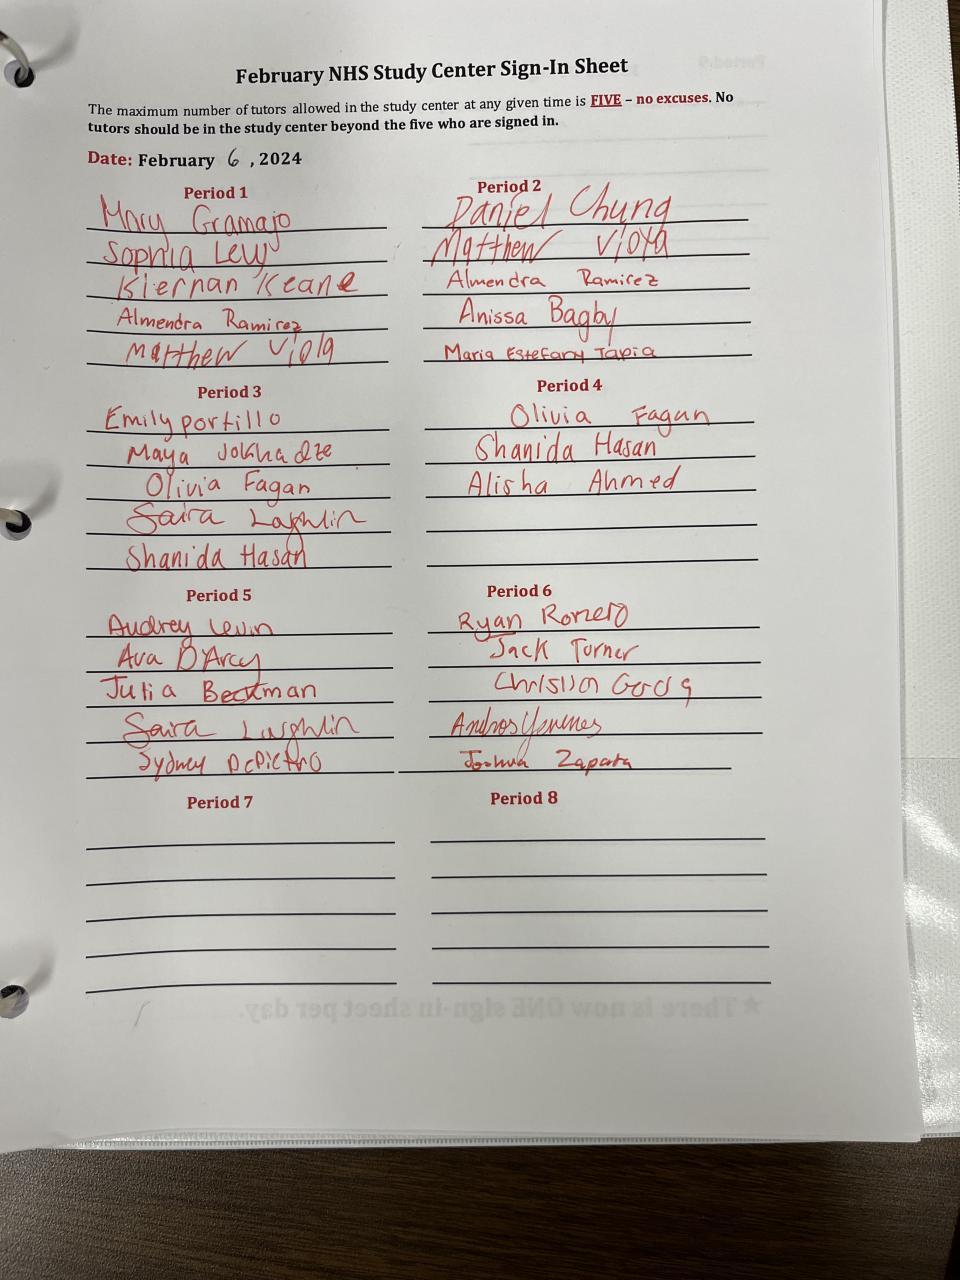 February NHS Study Center Sign-In Sheet
The maximum number of tutors allowed in the study center at any given time is FIVE – no excuses. No
tutors should be in the study center beyond the five who are signed in.
Date: February 6, 2024
Period 1
Mary Gramajo
Sophia Levy
Kiernan Keane
Almendra Ramirez
Matthew Viola
Period 2
Daniel Chung
Matthew Viola
Almendra Ramirez
Anissa Bagby
Maria Estefany Tapia
Period 3
Emily portillo
Maya Jokhadze
Olivia Fagan
Saira Laghlin
Shanida Hasan
Period 4
Olivia Fagan
Shanida Hasan
Alisha Ahmed
Period 5
Audrey Levin
Ava D'Arcy
Julia Beckman
Saira
Sydney DePietro
Period 6
Ryan Romero
Jack Turner
Christian
Joshua Zapata
Period 7
Period 8
★ There is now ONE sign-in sheet per day.